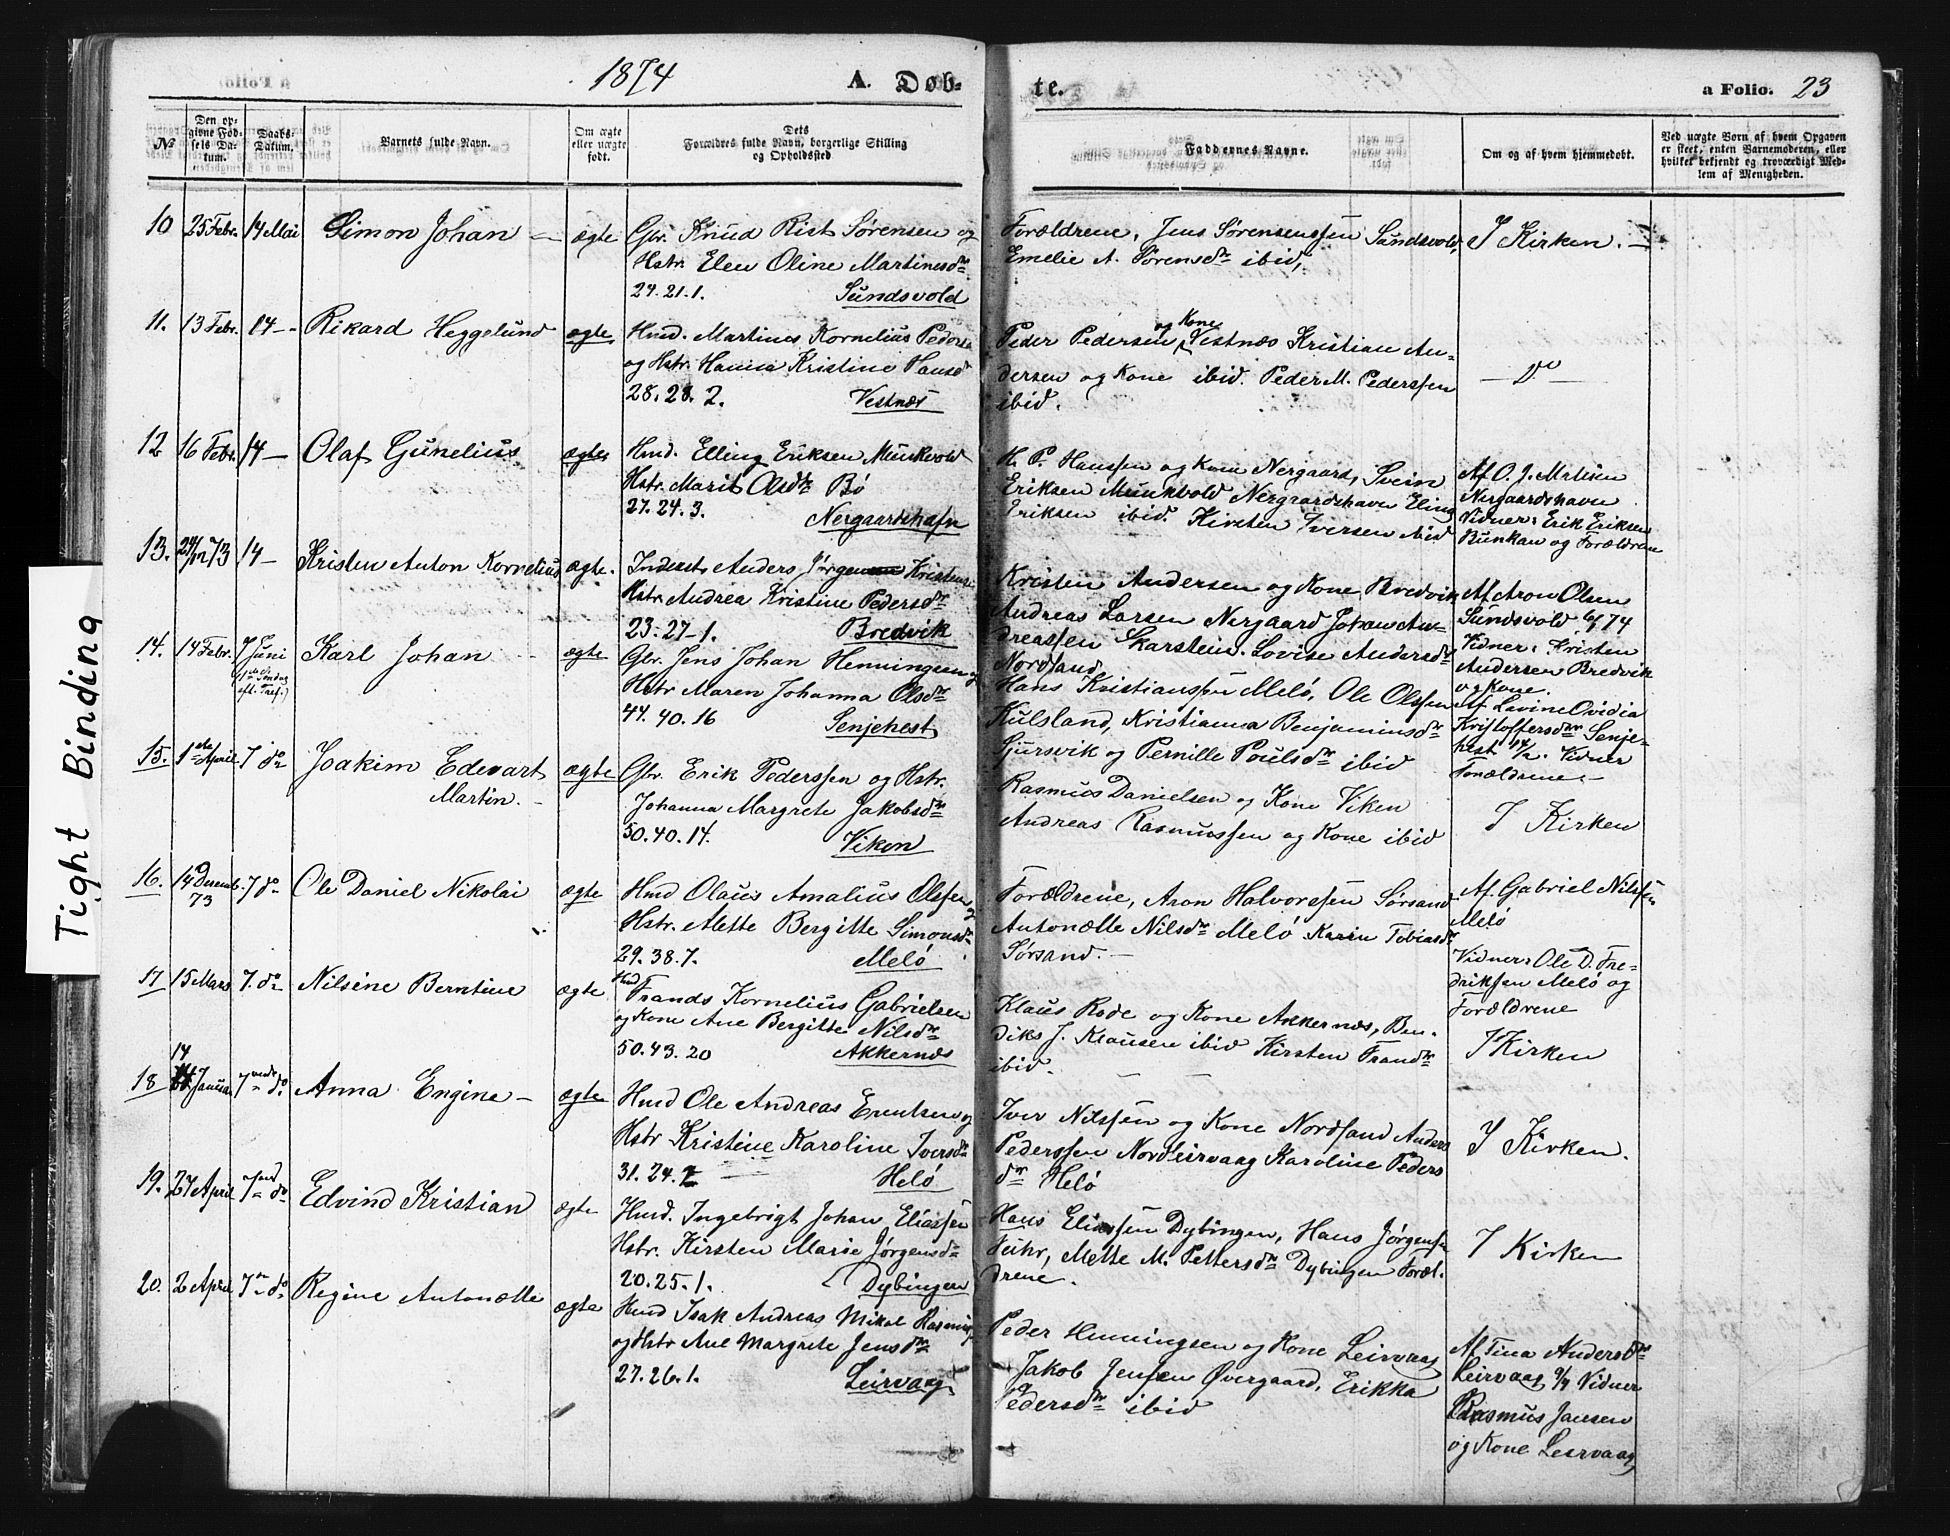 1874 A. Døb-
te.
a Folio. 23
Tight Binding
№
Den op-
givne Fød-
sels Da-
tum.
Daabs-
Datum.
Barnets fulde Navn.
Om ægte
eller uægte
født.
Dets
Forældres fulde Navn, borgerlige Stilling
og Opholdssted
Faddernes Navne.
Om og af hvem hjemmedøbt.
Ved uægte Børn af hvem Opgaven
er skeet, enten Barnemoderen, eller
hvilket bekjendt og troværdigt Med-
lem af Menigheden.
10 25 Febr. 14 Mai Simon Johan — ægte Gbr. Knud Rist Sørensen og
Hstr. Elen Oline Martinesdtr
24. 21. 1. Sundsvold
Forældrene, Jens Sørensenssen Sundsvold,
Emelie A. Sørensdtr ibid,
I Kirken. —
11. 13 Febr. 14 — Rikard Heggelund ægte Hmd. Martines Kornelius Peders
og Hstr. Hanna Kristine Hansd
28. 28. 2. Vestnæs
Peder Pedersen og Kone Vestnæs Kristian An-
dersen og Kone ibid. Peder M. Pederssen
ibid.
— Do —
12 16 Febr. 14 — Olaf Gunelius ægte Hmd. Elling Eriksen Munkvold
Hstr. Marit Olsdtr Bø
27. 24. 3. Nergaardshafn
H. P. Hanssen og Kone Nergaard, Svein
Eriksen Munkvold Nergaardshavn Eling
Eriksen ibid. Kirsten Iversen ibid
Af O. J. Matisen
Nergaardshavn
Vidner: Erik Eriksen
Bunkan og Forældrene
13. 24/12 73 14 — Kristen Anton Kornelius ægte. Inderst Anders Jørgensen Kristens
Hstr. Andrea Kristine Pedersdtr
23. 27 - 1. Bredvik
Kristen Andersen og Kone Bredvik
Andreas Larsen Nergaard Johan An-
dreassen Skarstein. Lovise Andersdtr
Nordsand
Af Aron Olsen
Sundsvold 6/1 74
Vidner: Kristen
Andersen Bredvik
og Kone.
14. 14 Febr. 7 Juni
(1ste Søndag
eft. Tref.)
Karl Johan ægte Gbr. Jens Johan Henningsen og
Hstr Maren Johanna Olsdtr
44. 40. 16 Senjehest
Hans Kristianssen Melø, Ole Olssen
Kulsland, Kristianna Benjaminsdtr
Sjursvik og Pernille Poulsdtr ibid
Af Lavine Ovidia
Kristoffersdtr Senje-
hest 14/2. Vidner
Forældrene. —
15. 1ste April 7 do Joakim Edevart
Martin. —
ægte Gbr. Erik Pederssen og Hstr.
Johanna Margrete Jakobsdtr
50. 40. 14. Viken
Rasmus Danielsen og Kone Viken
Andreas Rasmussen og Kone ibid
I Kirken
16. 14 Decemb. 73 7 do Ole Daniel Nikolai ægte Hmd Olaus Amalius Olssen og
Hstr. Mette Bergitte Simonsd
29. 38. 7. Melø
Forældrene, Aron Halvorssen Sørsand
Antonælle Nilsdtr Melø Karin Tobiasdtr
Sørsand. —
Af. Gabriel Nilssen
Melø
Vidner: Ole D. Fre-
driksen Melø og
Forældrene
17 15 Mars 7. do Nilsine Berntine ægte Hmd
Frands Kornelius Gabrielsen
og Kone Ane Bergitte Nilsdtr
50. 43. 20 Akkernæs
Klaus Rode og Kone Akkernæs, Ben-
diks J. Klausen ibid Kirsten Frandsdtr
ibid.
I Kirken
18 14 Januar 7nde do Anna Engine — ægte Hmd Ole Andreas Erntsen og
Hstr Kristine Karoline Iversdtr
31. 24. 2 Helø
Iver Nilssen og Kone Nordsand Anders
Pederssen Nordeirvaag Karoline Peders
dtr Helø
I Kirken.
19. 27 April 7nd do Edvind Kristian ægte Hmd. Ingebrigt Johan Eliassen
Hstr. Kirsten Marie Jørgensd
20. 25. 1. Dybingen
Hans Eliassen Dybingen, Hans Jørgens.
Fuhr, Mette M. Pettersdtr Dybingen Foræl-
drene.
I Kirken
20. 2 April 7 do Regine Antonælle ægte Hmd Isak Andreas Mikal Rasmus
og Hstr Ane Margrete Jensdtr
27. 26. 1. Leirvaag
Peder Henningsen og Kone Leirvaag
Jakob Jensen Øvergaard, Erikka
Pedersdtr ibid
Af Tina Andersdtr
Leirvaag 9/4 Vidner
Rasmus Jansen
og Kone Leirvaag